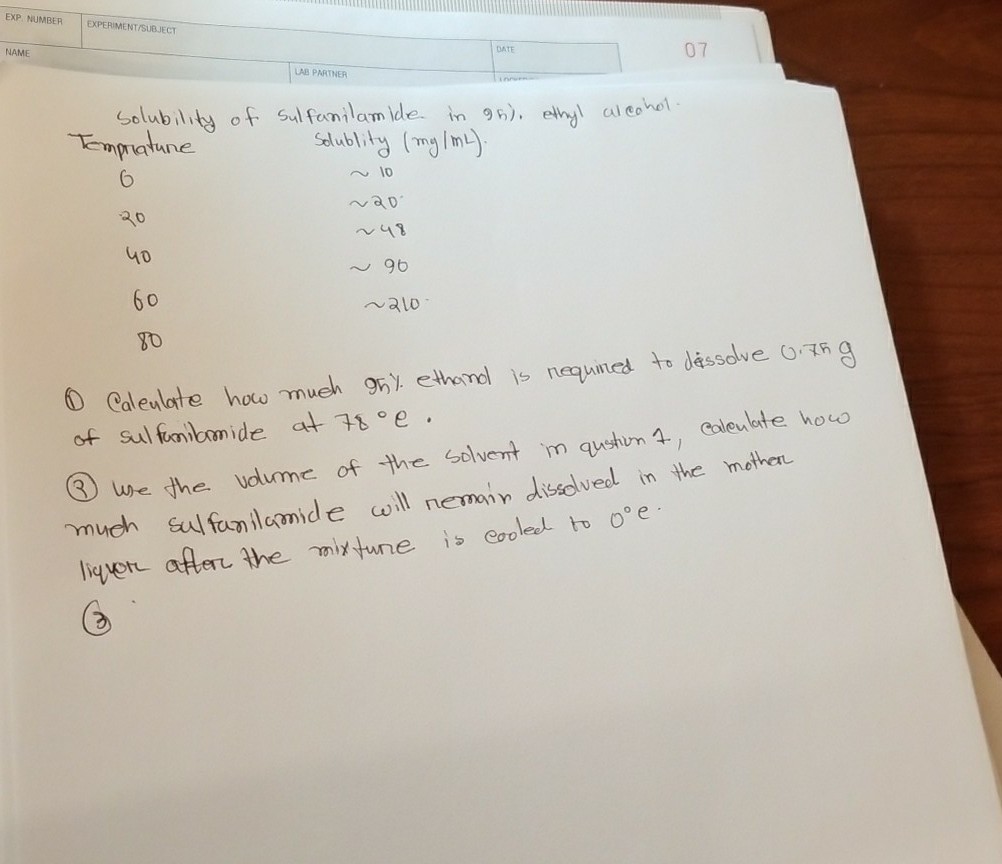 EXP. NUMBER
EXPERIMENT/SUBJECT
NAME
LAB PARTNER
DATE
07
Solubility of sulfanilamide in 95% ethyl alcohol.
Tempratune Solublity (mg/mL).
0 ~ 10
20 ~20
40 ~48
60 ~ 90
80 ~210
① Calculate how much 95% ethanol is required to dissolve 0.75 g
of sulfanilamide at 78°c.
② use the volume of the solvent in qustion 1, calculate how
much sulfanilamide will remain dissolved in the mother
liquor after the mixture is cooled to 0°c.
③